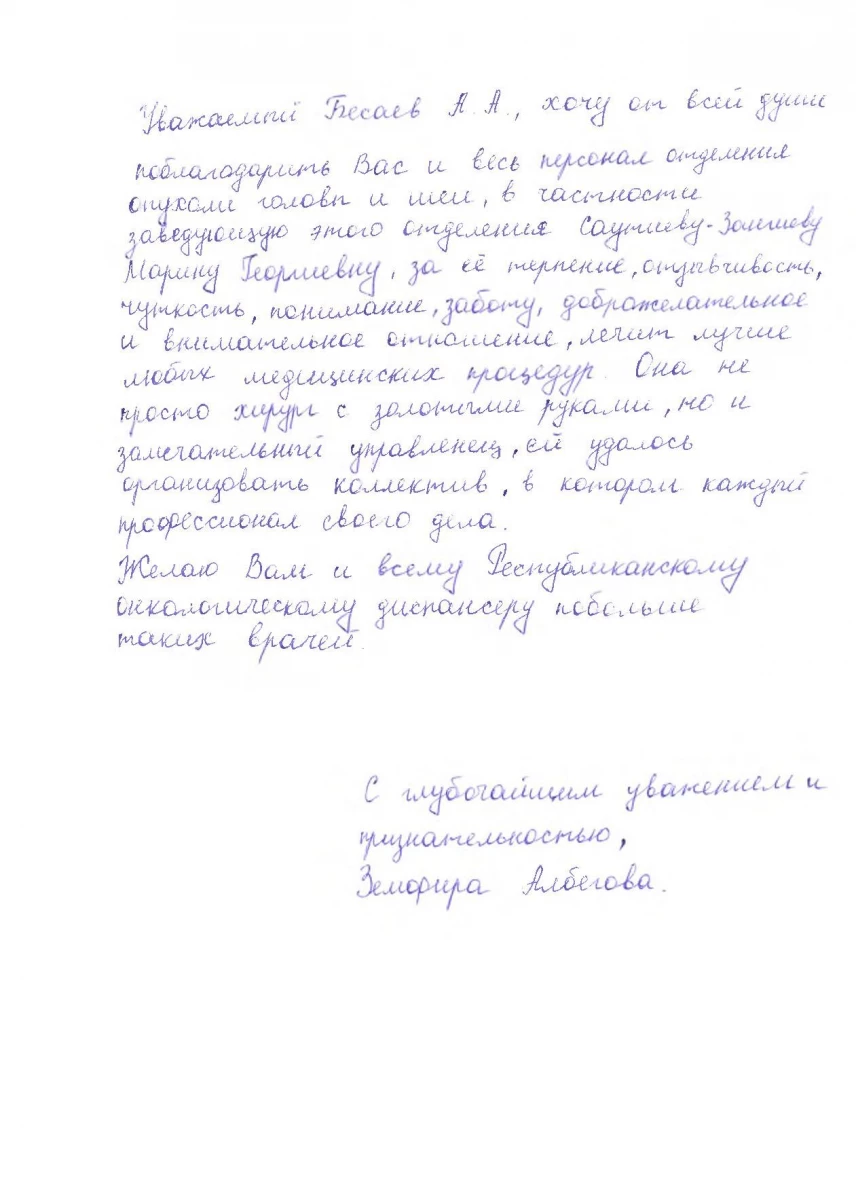 Уважаемый Бесаев А. А., хочу от всей души
поблагодарить Вас и весь персонал отделения
опухоли головы и шеи, в частности
заведующую этого отделения
Марину Георгиевну, за её терпение, отзывчивость,
чуткость, понимание, заботу, доброжелательное
и внимательное отношение, лечит лучше
любых медицинских процедур. Она не
просто хирург с золотыми руками, но и
замечательный управленец, ей удалось
организовать коллектив, в котором каждый
профессионал своего дела.
Желаю Вам и всему Республиканскому
онкологическому диспансеру побольше
таких врачей.
С глубочайшим уважением и
признательностью,
Земфира Албегова.